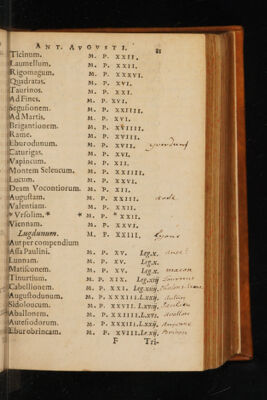 ANT. AVGVSTI. 81
Ticinum. M. P. XXII.
Laumellum. M. P. XXII.
Rigomagum. M. P. XXXVI.
Quadratas. M. P. XVI.
Taurinos. M. P. XXI.
Ad Fines. M. P. XVI.
Segusionem. M. P. XXIIII.
Ad Martis. M. P. XVI.
Brigantionem. M. P. XVIIII.
Rame. M. P. XVIII.
Eburodunum. M. P. XVII.
Caturigas. M. P. XVI.
Vapincum. M. P. XII.
Montem Seleucum. M. P. XXIIII.
Lucum. M. P. XXVI.
Deam Vocontiorum. M. P. XII.
Augustam. M. P. XXIII.
Valentiam. M. P. XXII.
* Vrsolim. * M. P. * XXII.
Viennam. M. P. XXVI.
Lugdunum. M. P. XXIII. Lyons
Aut per compendium
Assa Paulini. M. P. XV. Leg.x.
Lunnam. M. P. XV. Leg.x.
Matisconem. M. P. XV. Leg.x. macon
Tinurtium. M. P. XIX. Leg.xiij
Cabellionem. M. P. XXI. Leg.xiiij.
Augustodunum. M. P. XXXIII.L.xxij. Autun
Sidoloucum. M. P. XXVII. L.xviij.
Aballonem. M. P. XXIIII.L.xvi. Avallon
Autesiodorum. M. P. XXXIII.L.xxij.
Eburobrincam. M. P. XVIII.L.xij.
F Tri-